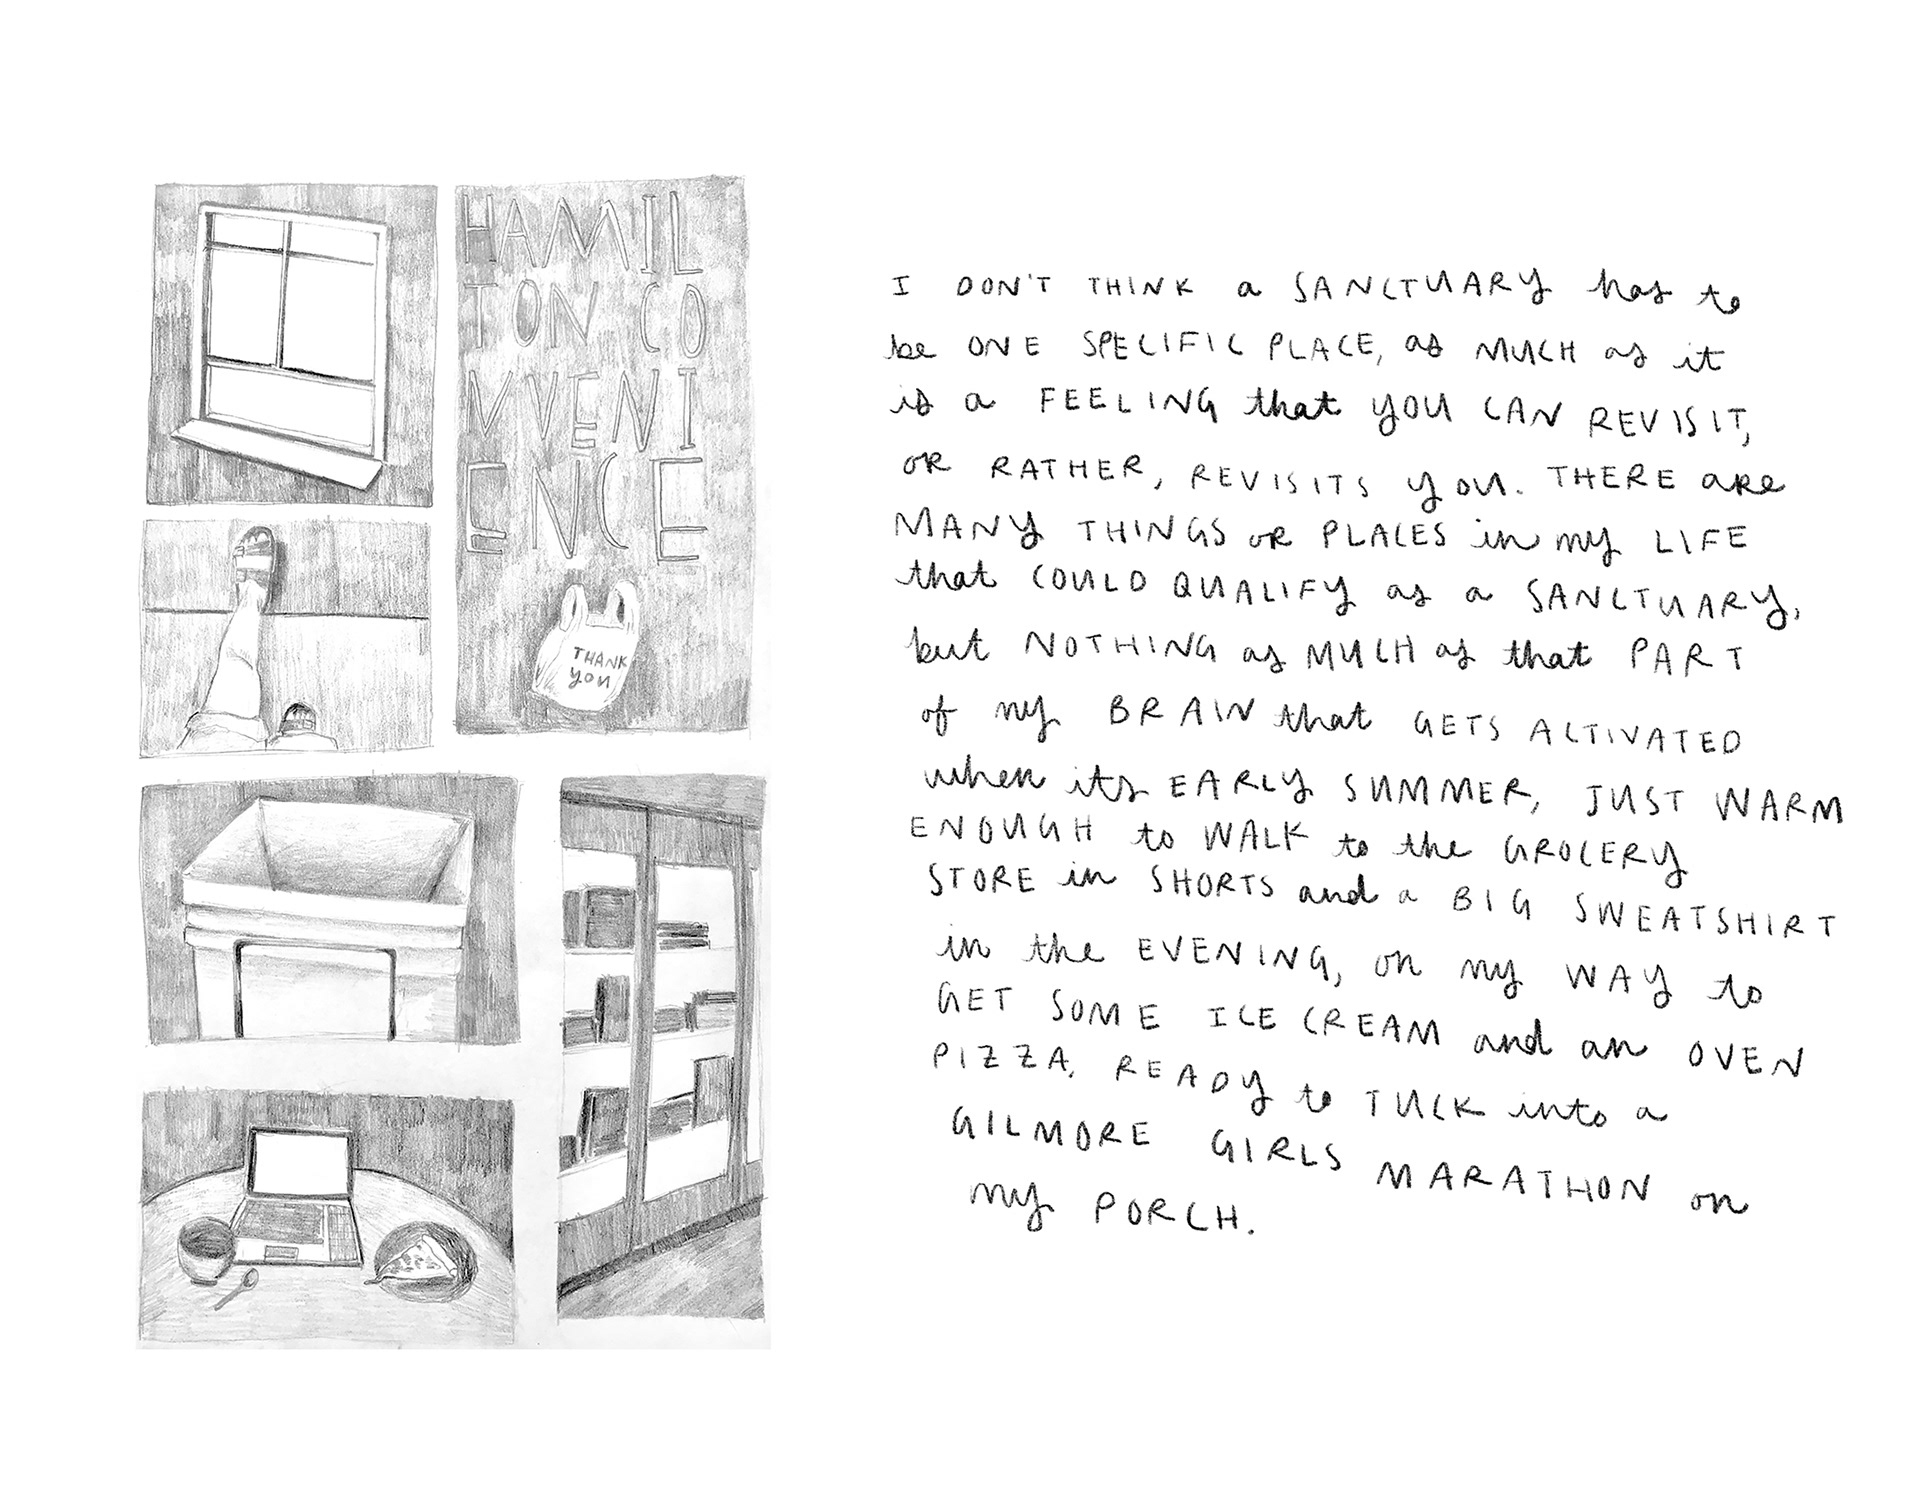 HAMIL
TON CO
NVENI
ENCE
THANK
YOU
I DON'T THINK a SANCTUARY has to
be ONE SPECIFIC PLACE, as MUCH as it
is a FEELING that YOU CAN REVISIT,
OR RATHER, REVISITS you. THERE are
MANY THINGS OR PLACES in my LIFE
that COULD QUALIFY as a SANCTUARY,
but NOTHING as MUCH as that PART
of my BRAIN that GETS ACTIVATED
when its EARLY SUMMER, JUST WARM
ENOUGH to WALK to the GROCERY
STORE in SHORTS and a BIG SWEATSHIRT
in the EVENING, on my WAY to
GET SOME ICE CREAM and an OVEN
PIZZA, READY to TUCK into a
GILMORE GIRLS MARATHON on
my PORCH.